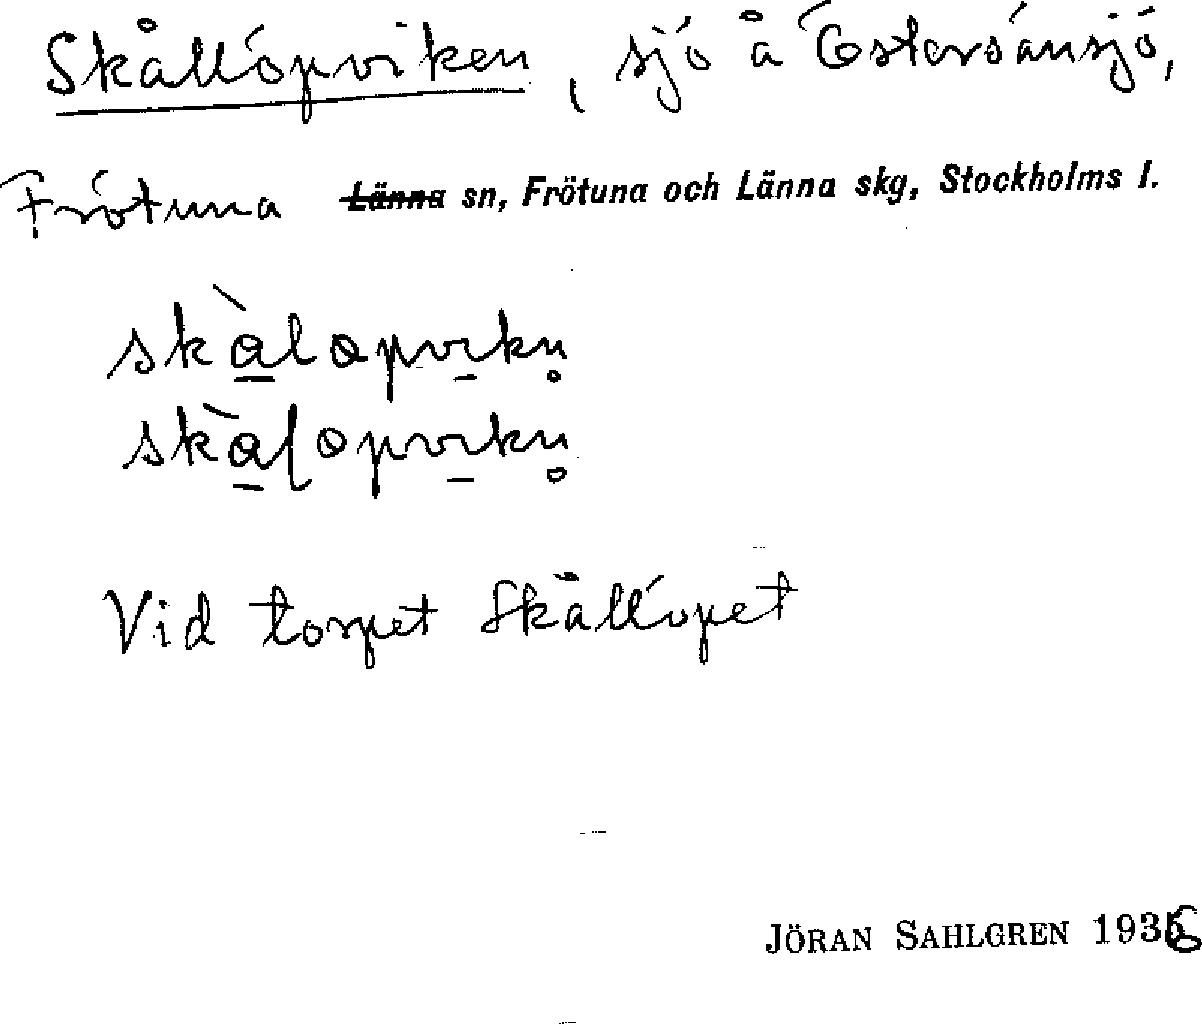 Skållöpviken, sjö å Östersånsjö,
Frötuna ~~Länna~~ sn, Frötuna och Länna skg, Stockholms l.
Vid torpet Skållöpet
JÖRAN SAHLGREN 1936